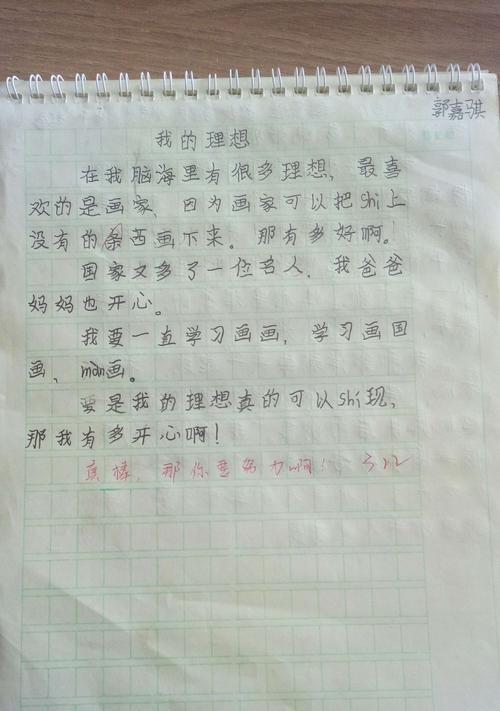 郭嘉骐
我的理想
在我脑海里有很多理想，最喜
欢的是画家，因为画家可以把shì上
没有的东西画下来。那有多好啊！
国家又多了一位名人，我爸爸
妈妈也开心。
我要一直学习画画，学习画国
画、màn画。
要是我的理想真的可以shí现，
那我有多开心啊！
真棒，那你要努力啊！ 3.22